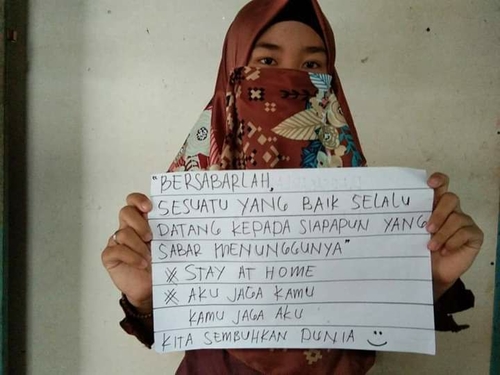 "BERSABARLAH,
SESUATU YANG BAIK SELALU
DATANG KEPADA SIAPAPUN YANG
SABAR MENUNGGUNYA"
# STAY AT HOME
# AKU JAGA KAMU
KAMU JAGA AKU
KITA SEMBUHKAN DUNIA